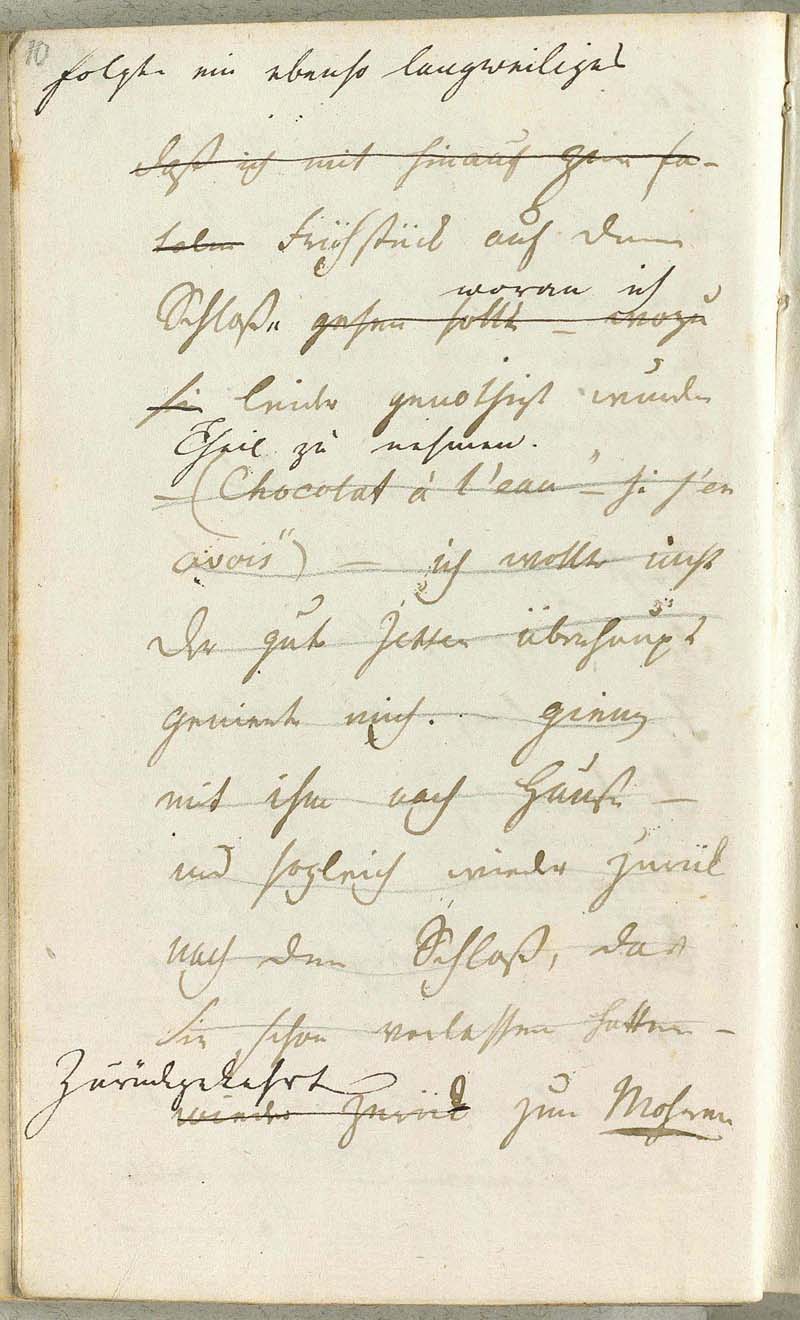 10
folgte ein ebenso langweiliges
daß ich mit hinauf zum fa-
talen Frühstück auf dem
woran ich
Schloße gehen sollte – wozu
sie leider genöthigt wurden
Theil zu nehmen.
– (Chocolat à l'eau" – si j'en
avois") – ich wollte nicht
der gute überhaupt
genierte mich. gieng
mit ihm nach Hause –
und sogleich wieder zurük
nach dem Schloß, das
Sie schon verlassen hatten –
Zurückgekehrt
wieder zurük zum Mohren